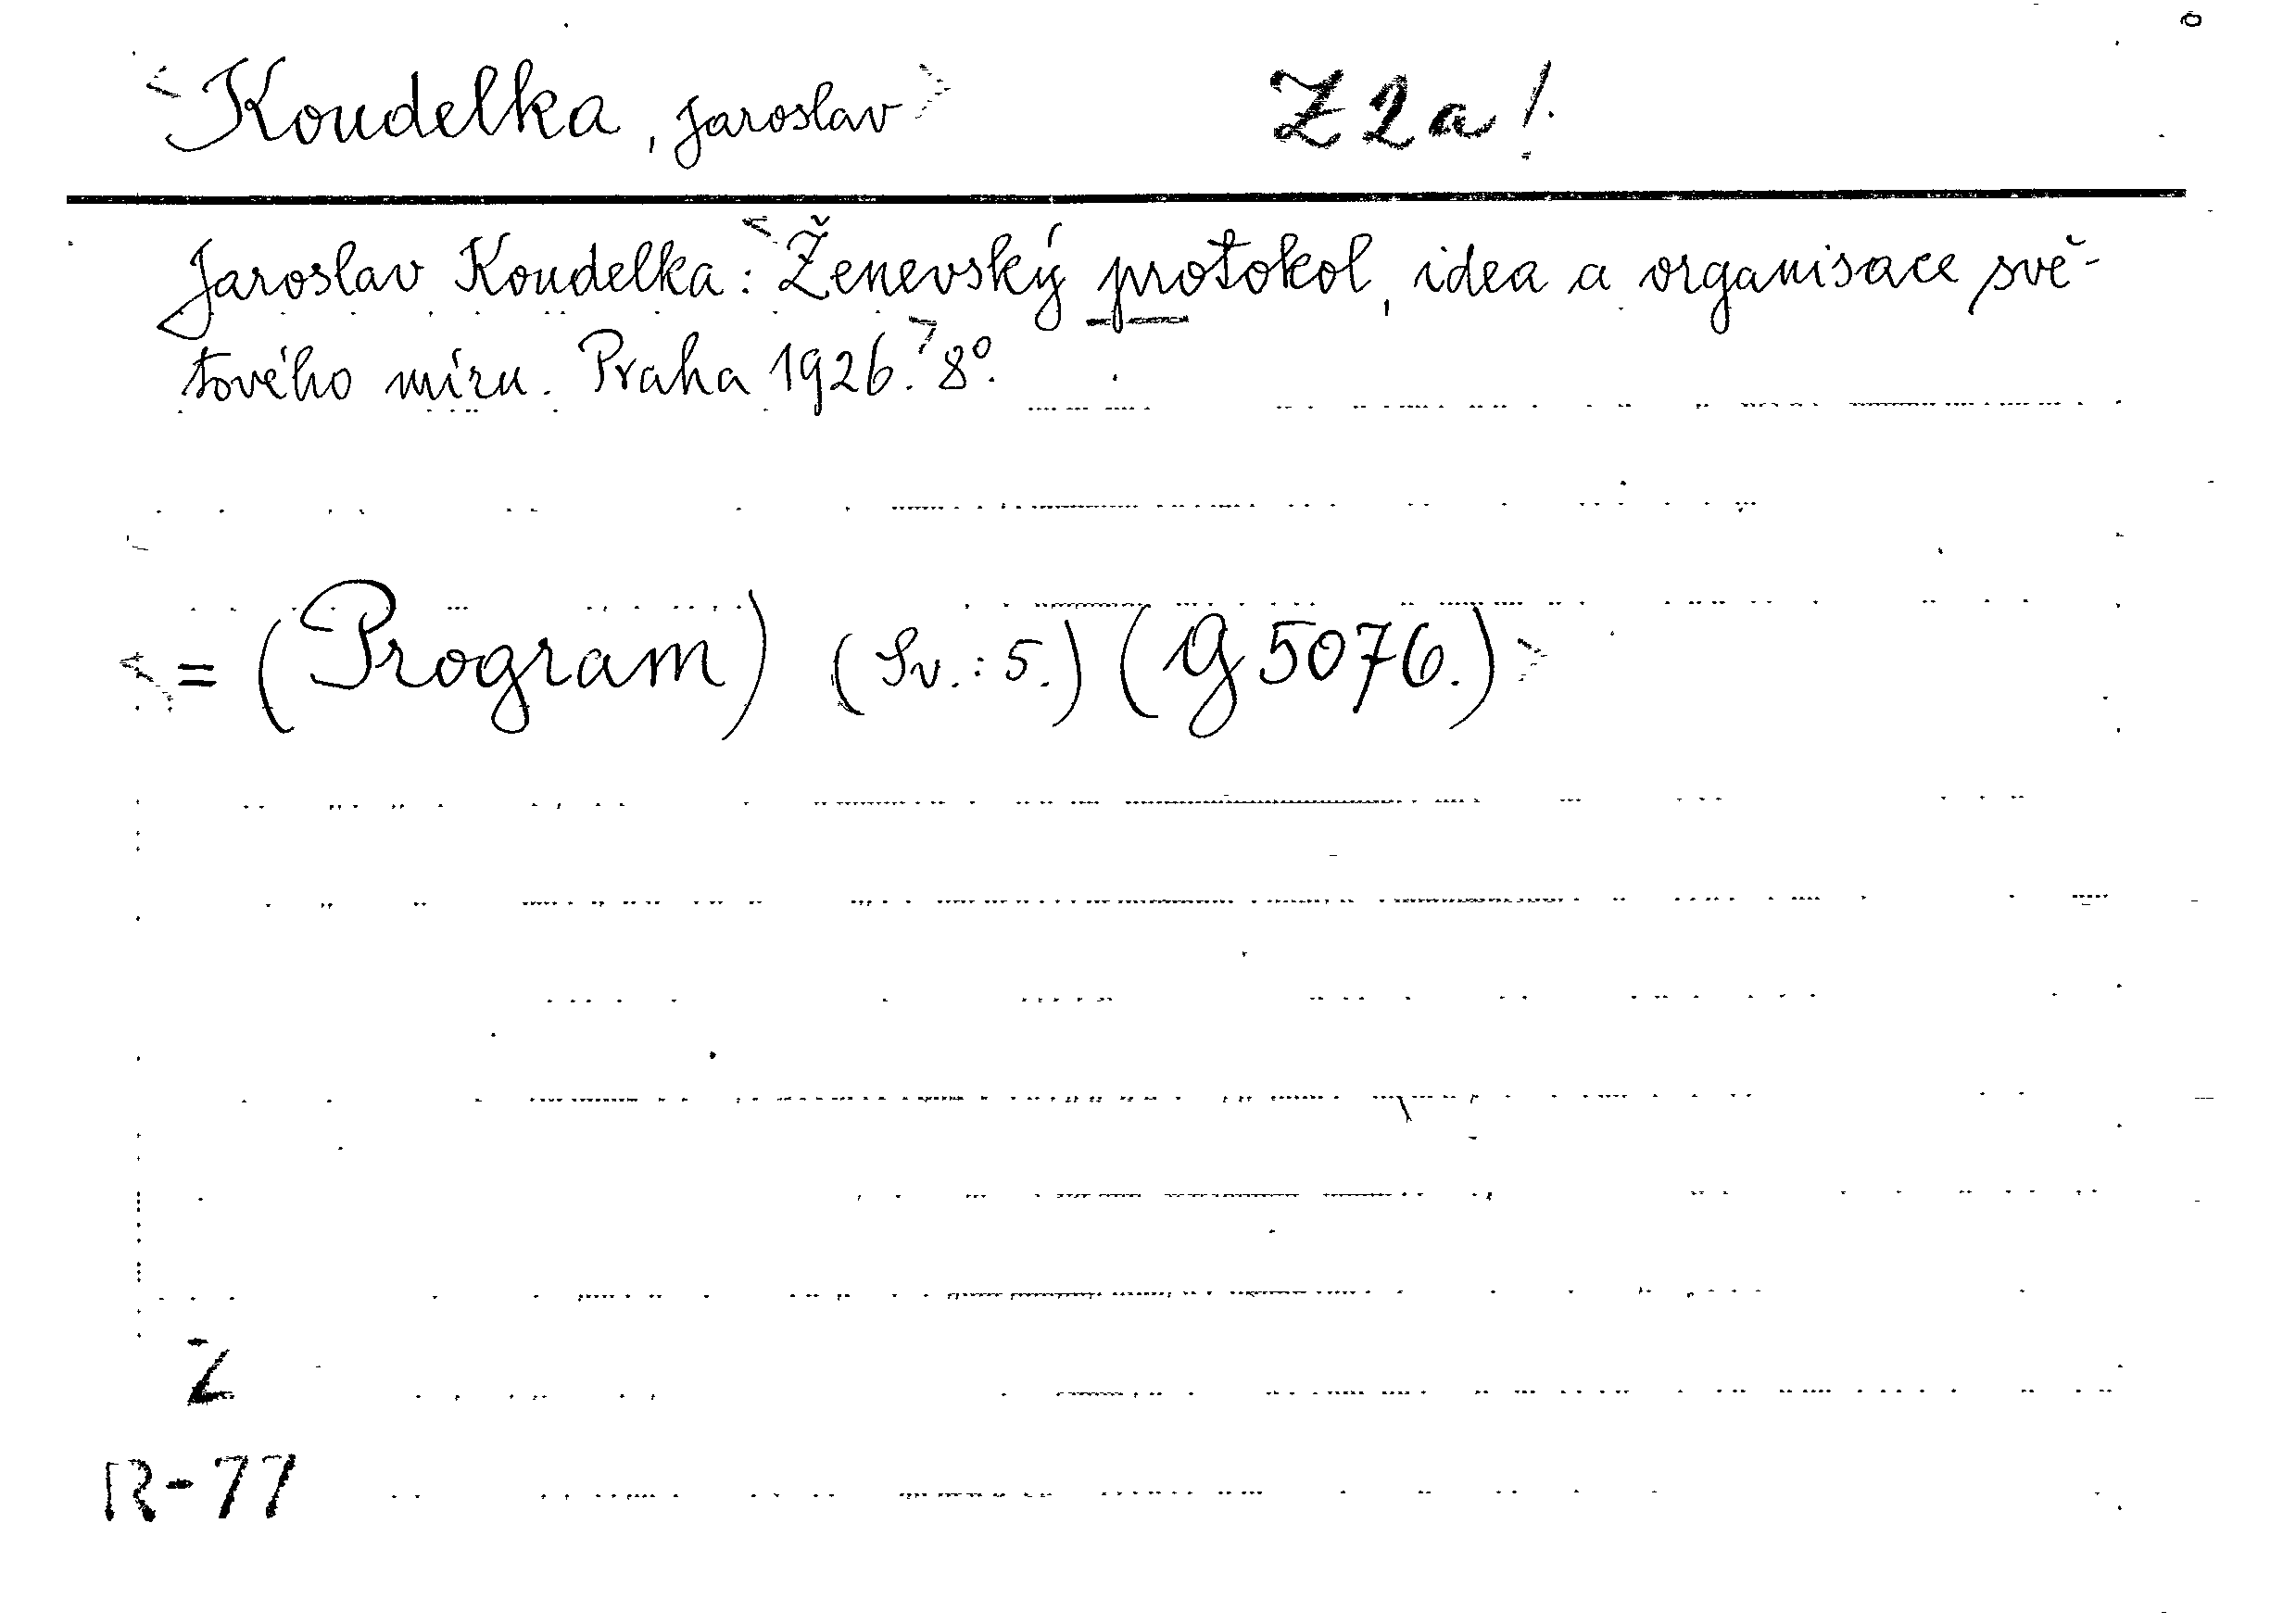 <Koudelka, Jaroslav> Z2a!
Jaroslav Koudelka: <Ženevský protokol, idea a organisace svě-
tového míru. Praha 1926.> 8°.
<= (Program) (Sv.: 5.) (G 5076.)>
Z
R-77